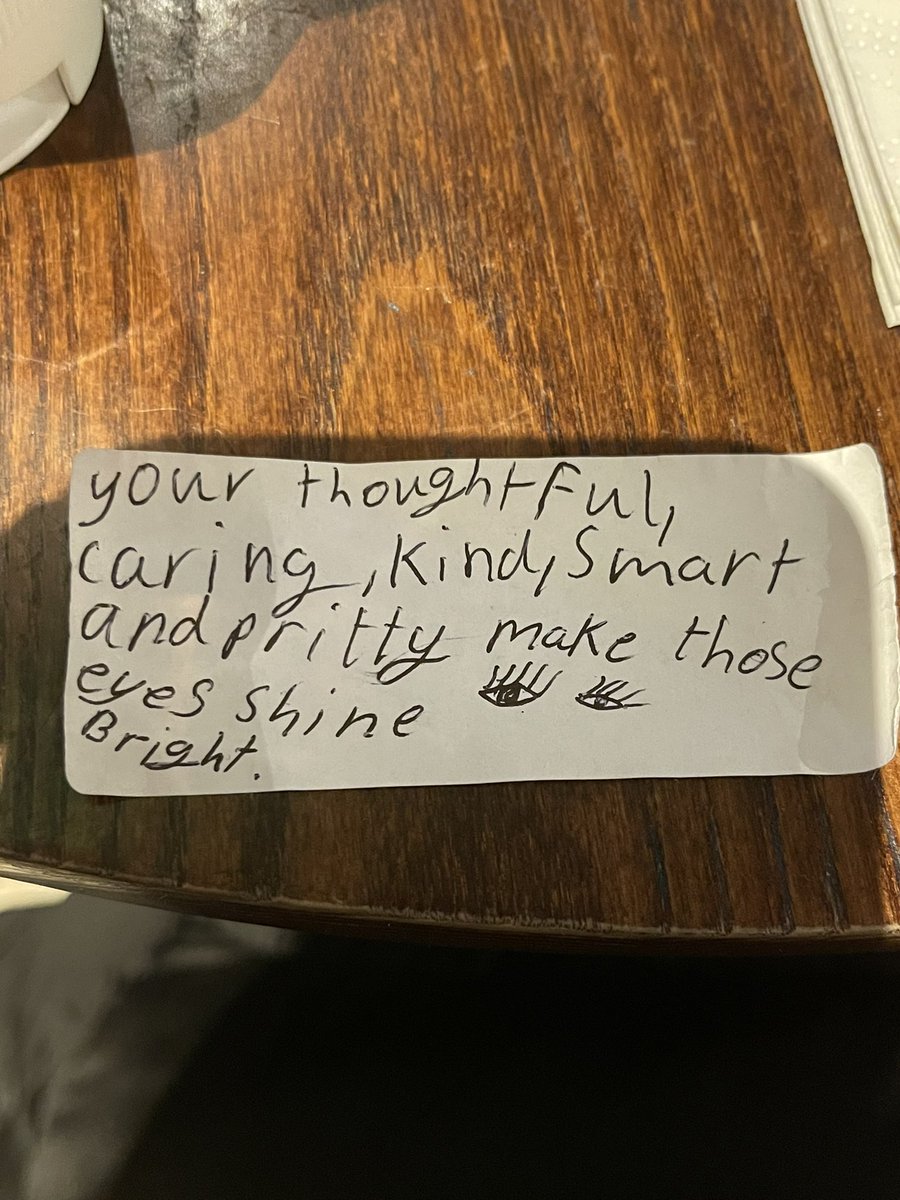 your thoughtful,
caring, kind, smart
and pritty make those
eyes shine
Bright.